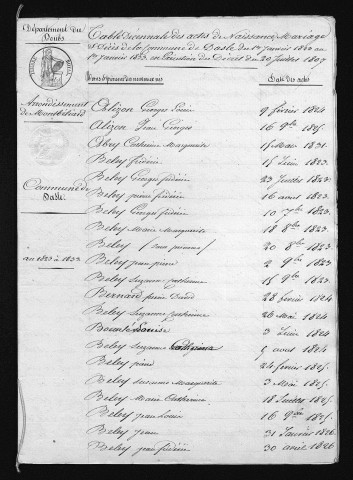 Département du
Doubs
Arrondissement
de Montbéliard
Commune de
Dasle.
an 1823 à 1833
Table décennale des actes de Naissance, Mariage
et Décès de la Commune de Dasle du 1er janvier 1823 au
1er janvier 1833, en Exécution du Décret du 20 Juillet 1807
Noms & prénoms
Date des actes
Alizon Georges Louis 9 février 1824
Alizon Jean Georges 16 9bre 1825.
Abry Catherine Marguerite 15 Mars 1831.
Beley frédéric 15 Juin 1823.
Beley Georges frédéric 23 Juillet 1823.
Beley pierre frédéric 16 aout 1823
Beley Georges frédéric 10 7bre 1823.
Beley Marie Marguerite 18 8bre 1823.
Beley (sans prénoms) 20 8bre 1823.
Beley jean pierre 2 9bre 1823.
Beley Suzanne Catherine 15 9bre 1823.
Bernard pierre David 28 février 1824
Beley Suzanne Catherine 26 Mai 1824
Louise 3 Juin 1824
Beley Suzanne Catherine 9 aout 1824
Beley pierre 24 février 1825.
Beley Suzanne Marguerite 3 Mai 1825.
Beley Marie Catherine 18 Juillet 1825.
Beley jean Louis 16 9bre 1825.
Beley jean 31 Janvier 1826.
Beley jean frédéric 30 avril 1826